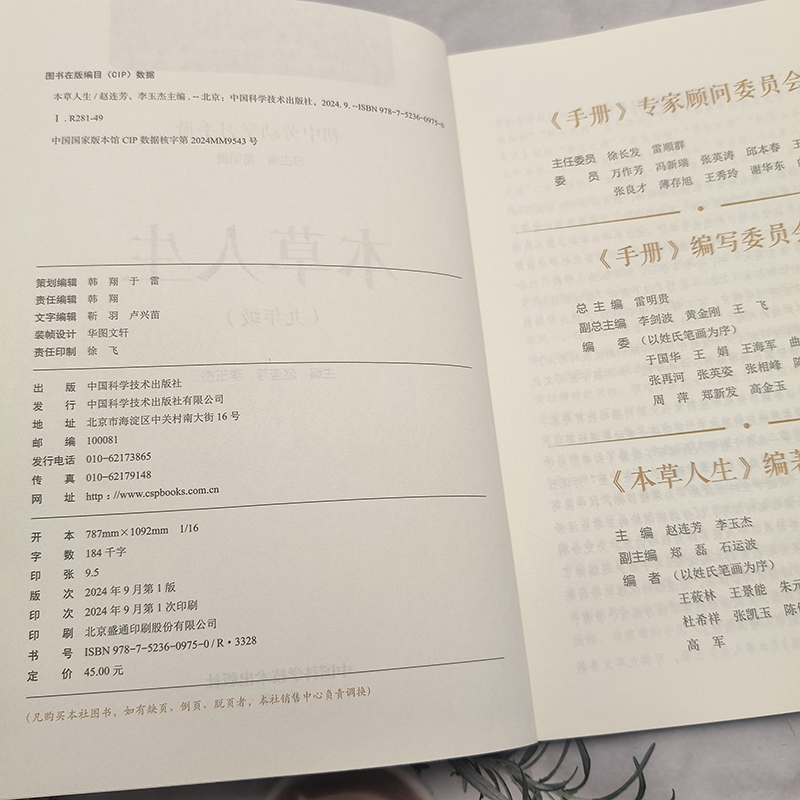 图书在版编目（CIP）数据
本草人生 / 赵连芳、李玉杰主编 . -- 北京：中国科学技术出版社，2024. 9. --ISBN 978-7-5236-0975-0
Ⅰ . R281-49
中国国家版本馆 CIP 数据核字第 2024MM9543 号
策划编辑 韩 翔 于 雷
责任编辑 韩 翔
文字编辑 靳 羽 卢兴苗
装帧设计 华图文轩
责任印制 徐 飞
出 版 中国科学技术出版社
发 行 中国科学技术出版社有限公司
地 址 北京市海淀区中关村南大街 16 号
邮 编 100081
发行电话 010-62173865
传 真 010-62179148
网 址 http：//www.cspbooks.com.cn
开 本 787mm×1092mm 1/16
字 数 184 千字
印 张 9.5
版 次 2024 年 9 月第 1 版
印 次 2024 年 9 月第 1 次印刷
印 刷 北京盛通印刷股份有限公司
书 号 ISBN 978-7-5236-0975-0 / R · 3328
定 价 45.00 元
（凡购买本社图书，如有缺页、倒页、脱页者，本社销售中心负责调换）
《手册》专家顾问委员会
主任委员 徐长发 雷顺群
委 员 万作芳 冯新瑞 张英涛 邱本春 王
张良才 薄存旭 王秀玲 谢华东
《手册》编写委员会
总 主 编 雷明贵
副总主编 李剑波 黄金刚 王 飞
编 委 （以姓氏笔画为序）
于国华 王 娟 王海军 曲
张再河 张英姿 张相峰 陈
周 萍 郑新发 高金玉
《本草人生》编著
主 编 赵连芳 李玉杰
副主编 郑 磊 石运波
编 者 （以姓氏笔画为序）
王莜林 王景能 朱元
杜希祥 张凯玉 陈
高 军